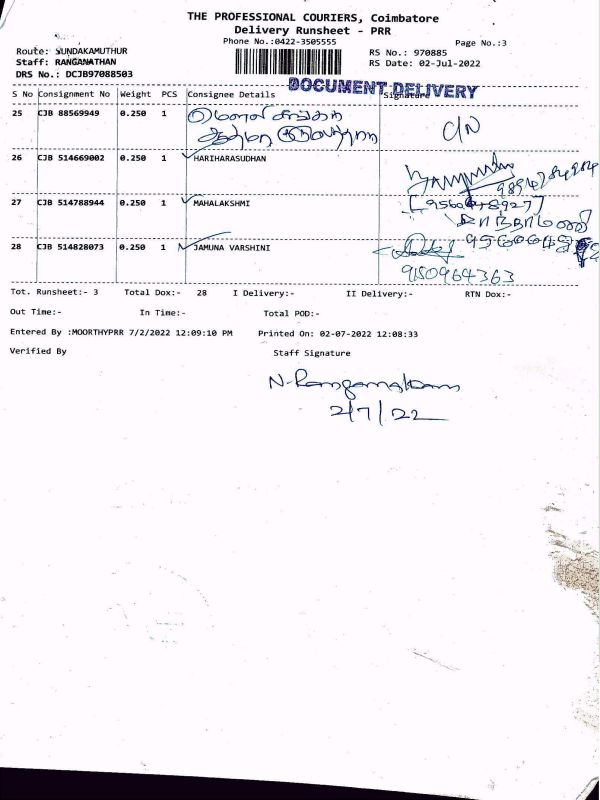 THE PROFESSIONAL COURIERS, Coimbatore
Delivery Runsheet - PRR
Phone No.:0422-3505555
Page No.:3
Route: SUNDAKAMUTHUR
RS No.: 970885
Staff: RANGANATHAN
RS Date: 02-Jul-2022
DRS No.: DCJB97088503
DOCUMENT DELIVERY
S No Consignment No Weight PCS Consignee Details Signature
25 CJB 88569949 0.250 1
C/N
26 CJB 514669002 0.250 1 HARIHARASUDHAN
27 CJB 514788944 0.250 1 MAHALAKSHMI
28 CJB 514828073 0.250 1 JAMUNA VARSHINI
9150964363
Tot. Runsheet:- 3 Total Dox:- 28 I Delivery:- II Delivery:- RTN Dox:-
Out Time:- In Time:- Total POD:-
Entered By :MOORTHYPRR 7/2/2022 12:09:10 PM Printed On: 02-07-2022 12:08:33
Verified By Staff Signature
N. Ranganathan
2/7/22